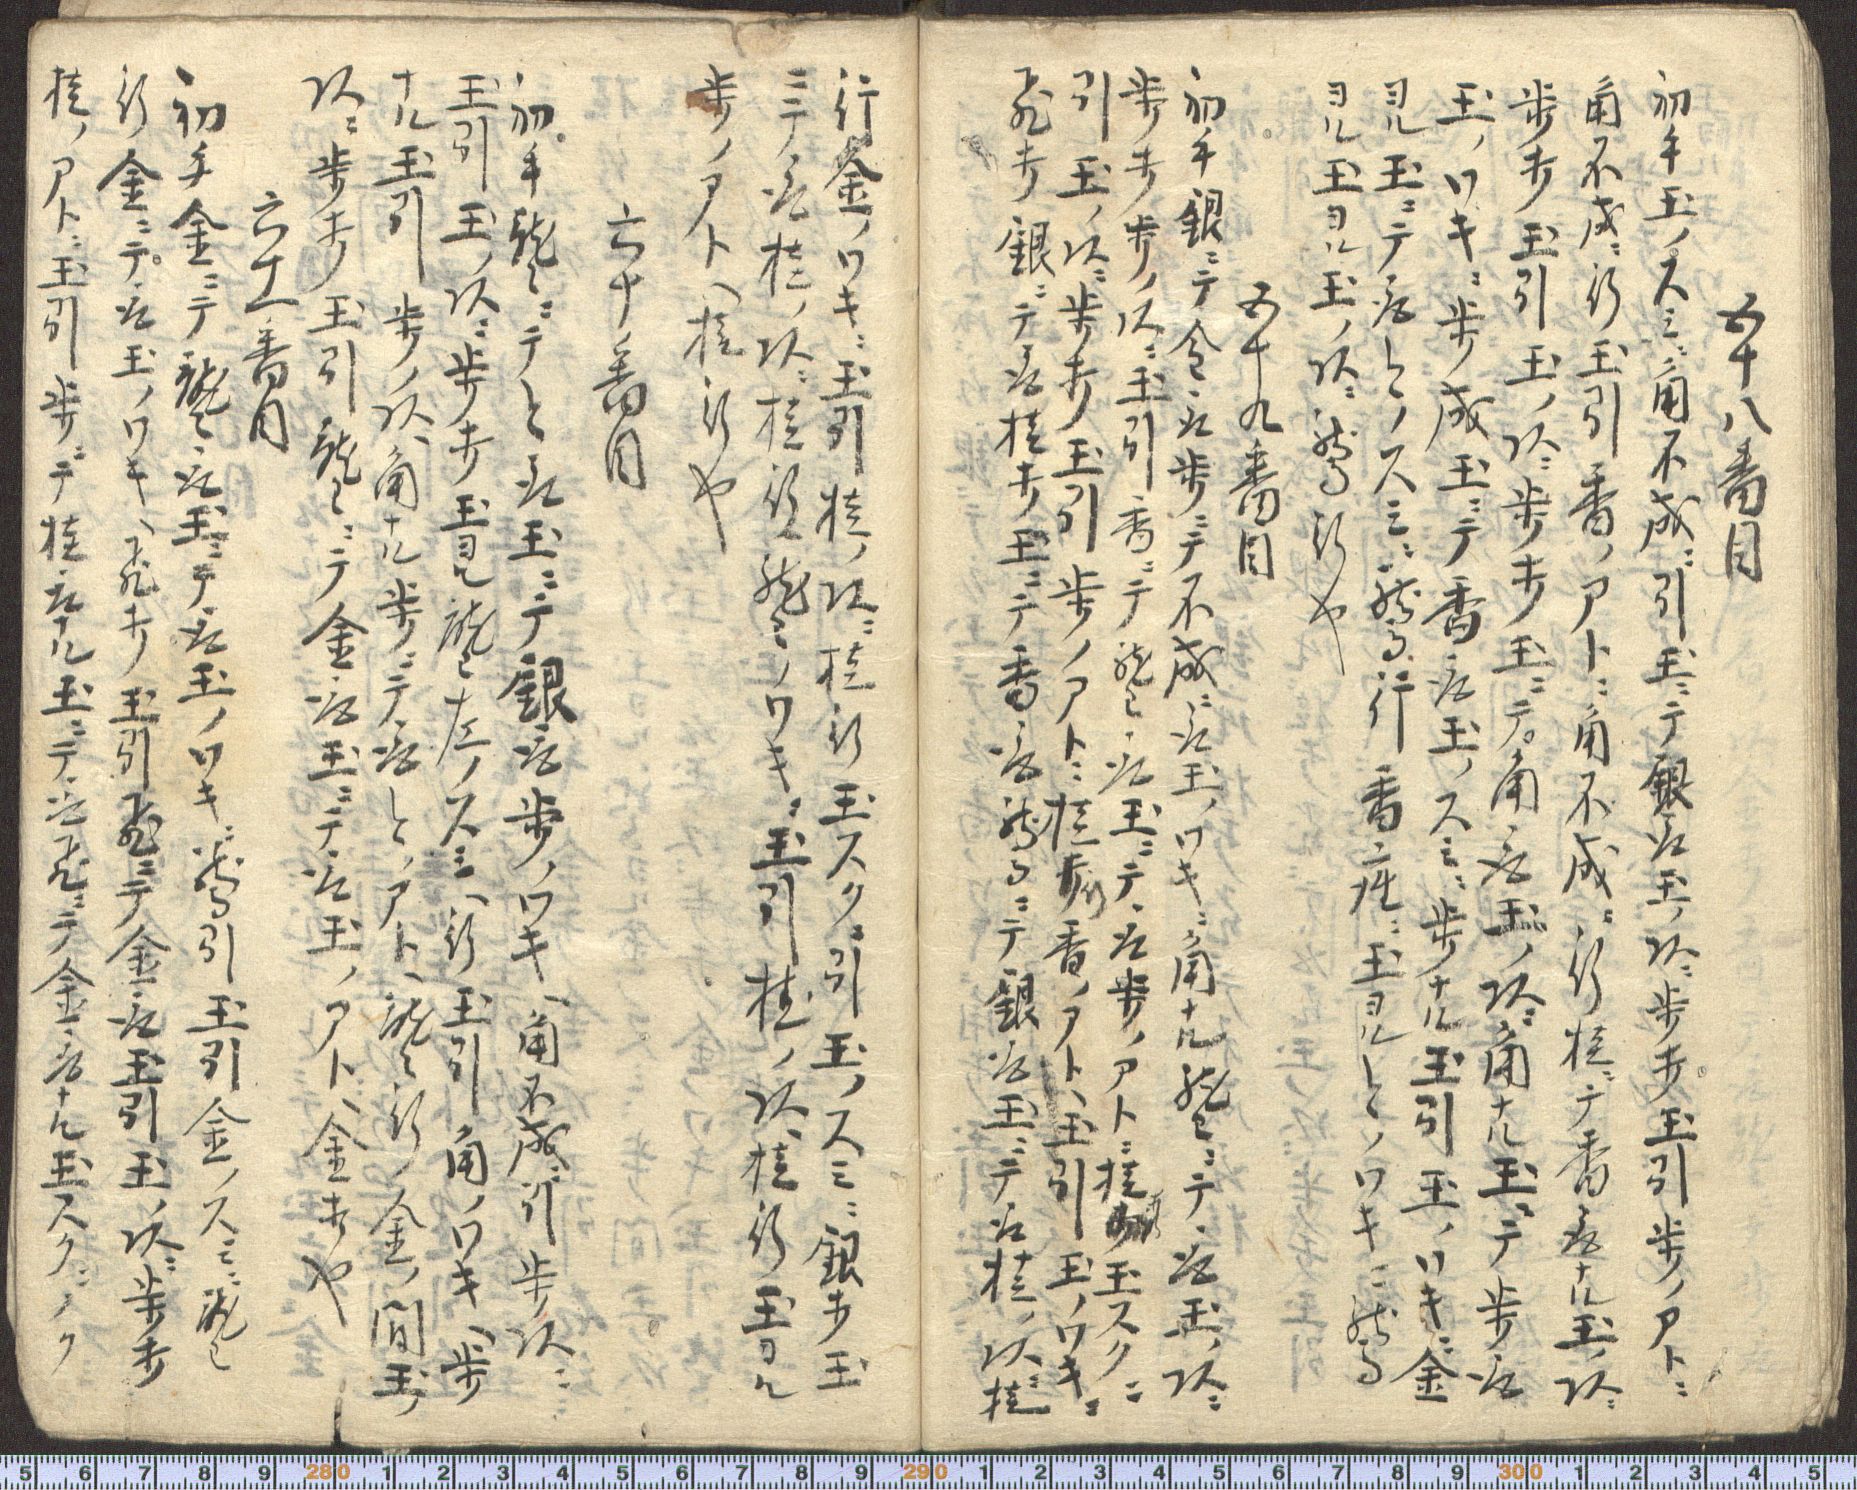 五十八番目
初手玉ノスミニ角不成ニ引玉ニテ銀取玉ノ次ニ歩打玉引歩ノアトニ
角不成ニ行玉引香ノアトニ角不成ニ行桂ニテ香取ナル玉ノ次ニ
歩打玉引玉ノ次ニ歩打玉ニテ角取玉ノ次ニ角ナル玉ニテ歩取
玉ノワキニ歩ノ成玉ニテ香取玉ノスミニ歩ナル玉引玉ノワキニ金
ヨル玉ニテ取トノスミニ馬行香ニ玉ヨルトノワキニ馬
ヨル玉ヨル玉ノ次ニ馬行也
五十九番目
初手銀ニテ金取歩ニテ不成ニ取玉ノワキニ角ナル龍ニテ取玉ノ次ニ
歩打歩ノ次ニ玉引香ニテ龍取玉ニテ取歩ノアトニ桂玉スクニ
引玉ノ次ニ歩打玉引歩ノアトニ桂香ノアトヘ玉引玉ノワキニ
飛打銀ニテ取桂打玉ニテ香取馬ニテ銀取玉ニテ取桂ノ次ニ桂
行金ノワキニ玉引桂ノ次ニ桂行玉スクニ引玉ノスミニ銀打玉
ニテ取桂ノ次ニ桂行龍ノワキニ玉引桂ノ次ヘ桂行玉ヨル
歩ノアトヘ桂行也
六十番目
初手龍ニテと取玉ニテ銀取歩ノワキヘ角不成ニ引歩ノ次ニ
玉引玉ノ次ニ歩打玉ヨル龍左ノスミヘ行玉引角ノワキヘ歩
ナル玉引歩ノ次ヘ角ナル歩ニテ取とノアトヘ龍行金ノ間玉
次ニ歩打玉引龍ニテ金取玉ニテ取玉ノアトヘ金打也
六十一番目
初手金ニテ龍取玉ニテ取玉ノワキニ馬引玉引金ノスミニ龍
行金ニテ取玉ノワキヘ飛打玉引飛ニテ金取玉引玉ノ次ニ歩打
桂ノアトニ玉引歩ニテ桂取ナル玉ニテ取飛ニテ金取ナル玉スクニノク